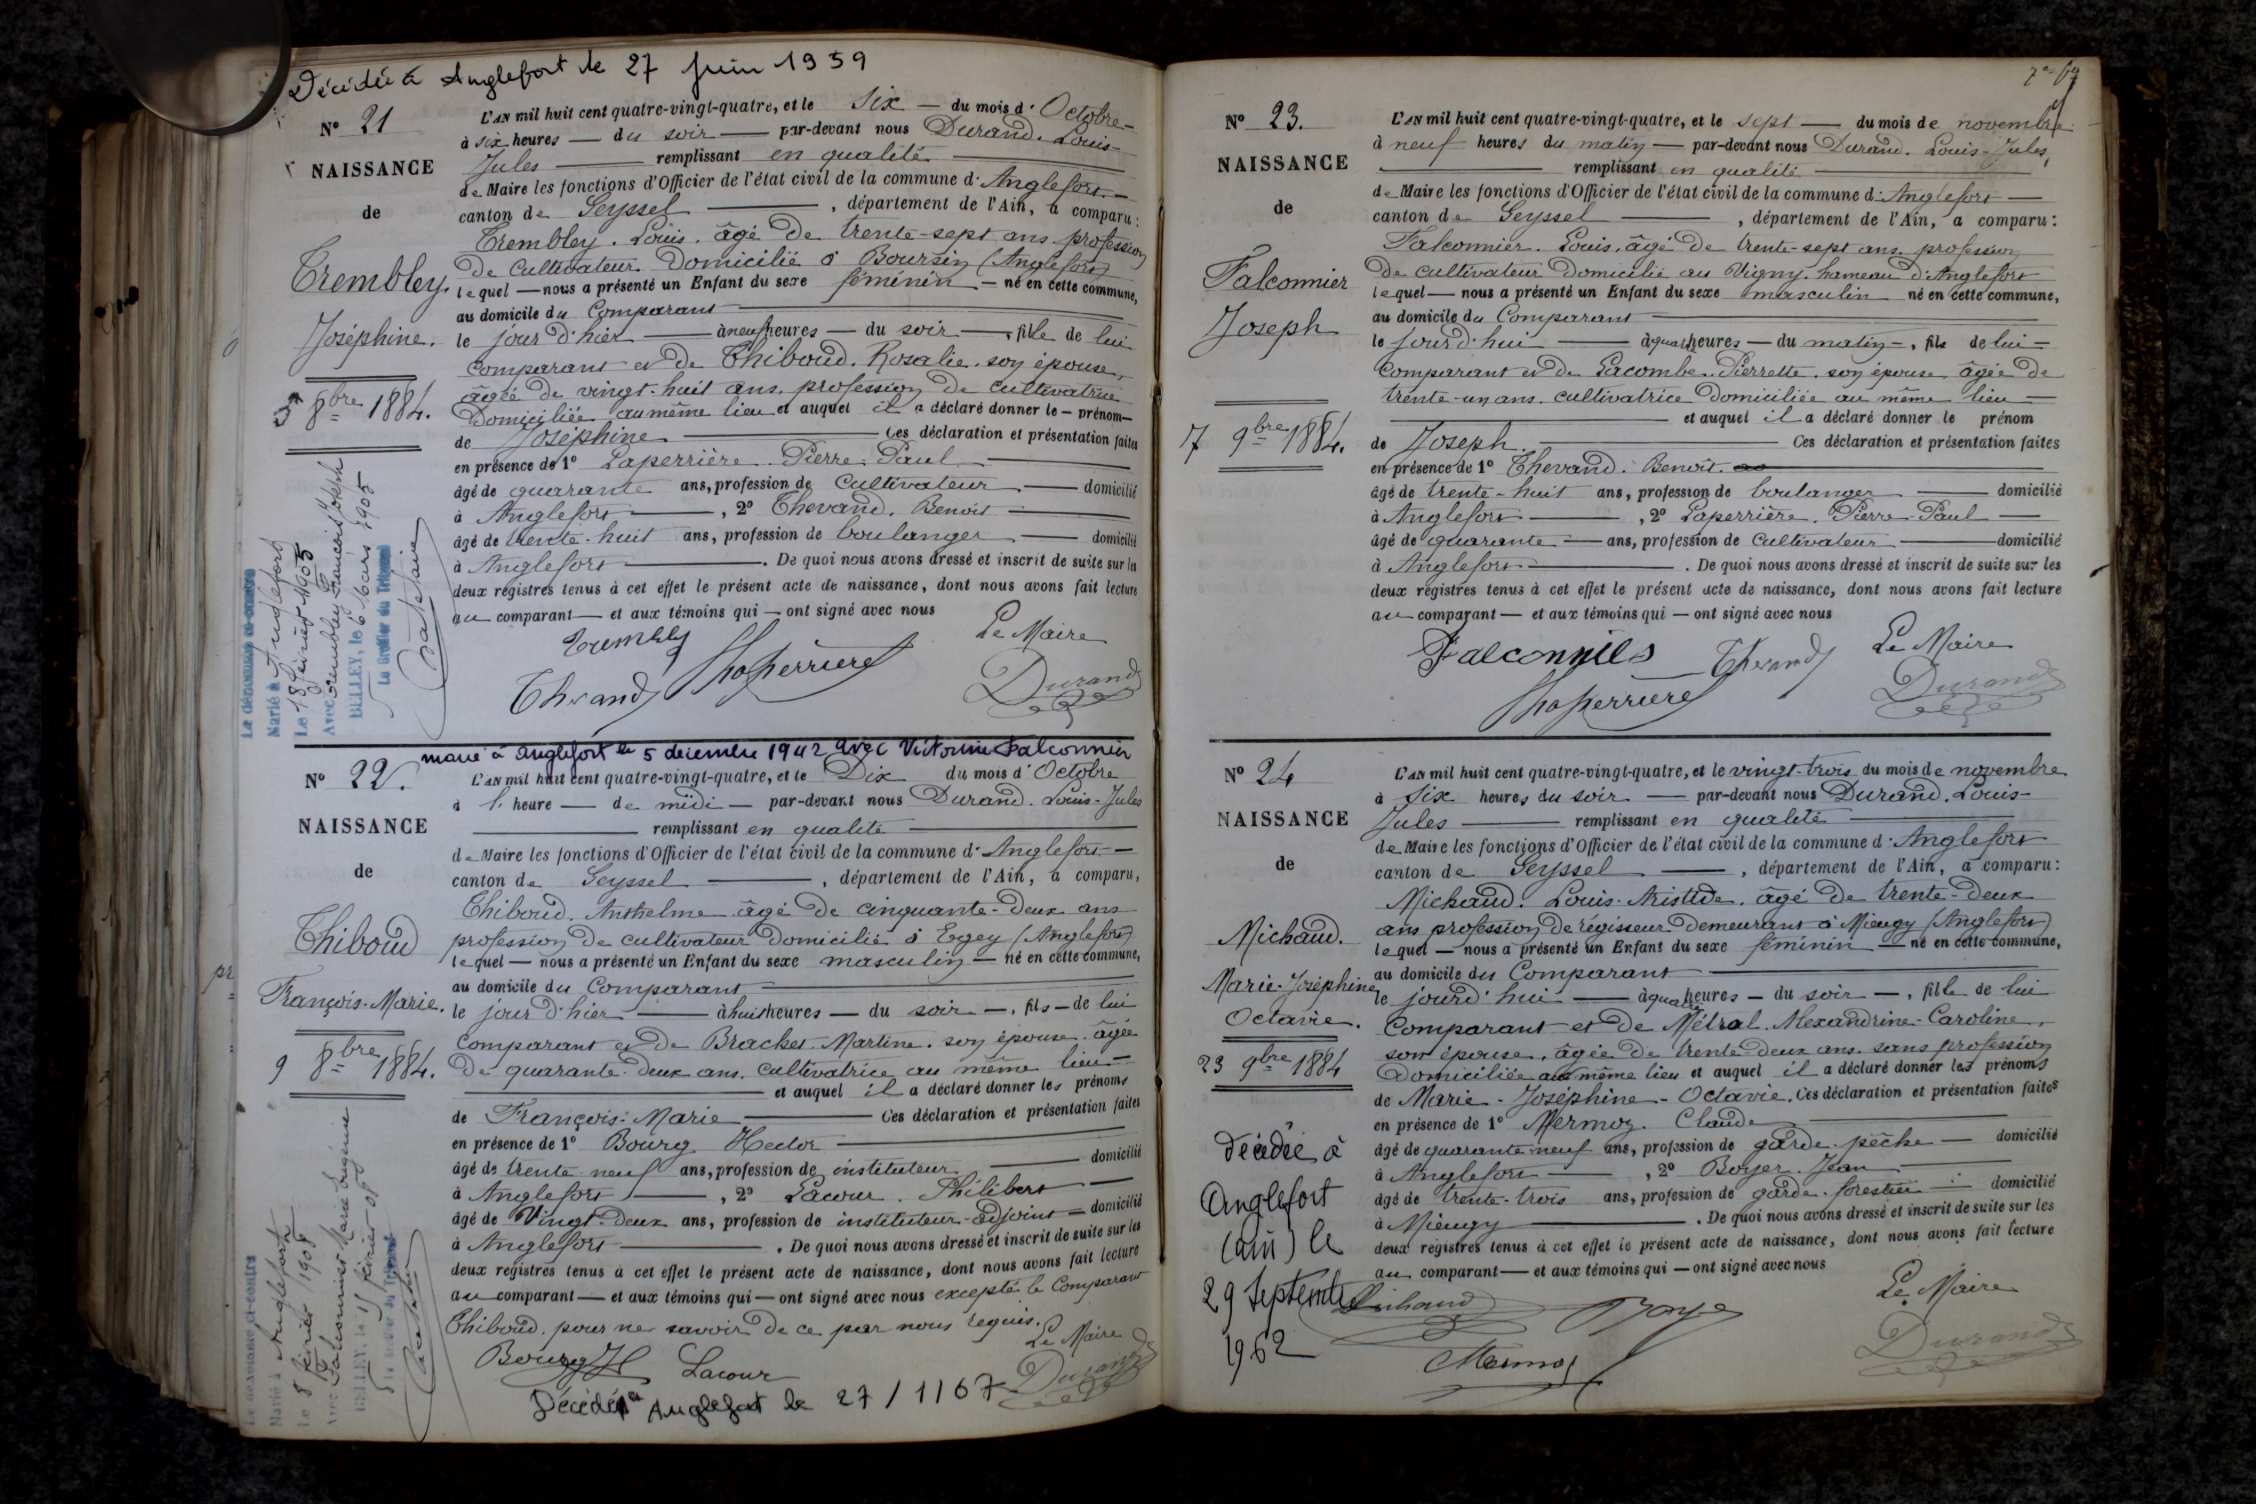 Décédée à Anglefort le 27 juin 1959
N° 21
NAISSANCE
de
Trembley.
Joséphine.
5 8bre 1884.
L'AN mil huit cent quatre-vingt-quatre, et le six — du mois d'Octobre —
à six heures — du soir — par-devant nous Durand. Louis-
Jules — remplissant en qualité —
de Maire les fonctions d'Officier de l'état civil de la commune d'Anglefort. —
canton de Seyssel —, département de l'Ain, a comparu:
Trembley. Louis. âgé de trente-sept ans. profession
de cultivateur. domicilié à Boursin (Anglefort)
lequel — nous a présenté un Enfant du sexe féminin — né en cette commune,
au domicile du Comparant —
le jour d'hier — à neuf heures — du soir —, fille de lui
comparant et de Thiboud. Rosalie. son épouse,
âgée de vingt-huit ans. profession de cultivatrice
domiciliée au même lieu et auquel il a déclaré donner le — prénom —
de Joséphine — Ces déclaration et présentation faites
en présence de 1° Laperrière. Pierre-Paul —
âgé de quarante ans, profession de cultivateur — domicilié
à Anglefort —, 2° Thevand. Benoît —
âgé de trente-huit ans, profession de boulanger — domicilié
à Anglefort —. De quoi nous avons dressé et inscrit de suite sur les
deux registres tenus à cet effet le présent acte de naissance, dont nous avons fait lecture
au comparant — et aux témoins qui — ont signé avec nous
Trembley
Thevand
Laperrière
Le Maire
Durand
La dénommée ci-contre
Marié à Anglefort
Le 18 février 1905
Avec Trembley François Joseph
BELLEY, le 6 Mars 1905
Le Greffier du Tribunal
marié à Anglefort le 5 décembre 1942 avec Victorine Falconnier
N° 22.
NAISSANCE
de
Thiboud
François-Marie.
9 8bre 1884.
L'AN mil huit cent quatre-vingt-quatre, et le Dix du mois d'Octobre
à 1. heure — de midi — par-devant nous Durand. Louis-Jules
— remplissant en qualité —
de Maire les fonctions d'Officier de l'état civil de la commune d'Anglefort. —
canton de Seyssel —, département de l'Ain, a comparu,
Thiboud. Anthelme âgé de cinquante-deux ans
profession de cultivateur domicilié à Egey (Anglefort)
lequel — nous a présenté un Enfant du sexe masculin — né en cette commune,
au domicile du Comparant —
le jour d'hier — à huit heures — du soir —, fils — de lui
comparant et de Brachet. Martine. son épouse. âgée
de quarante-deux ans. cultivatrice au même lieu —
— et auquel il a déclaré donner les prénoms
de François-Marie — Ces déclaration et présentation faites
en présence de 1° Bourg Hector —
âgé de trente-neuf ans, profession de instituteur — domicilié
à Anglefort —, 2° Lacour. Philibert —
âgé de Vingt-deux ans, profession de instituteur-adjoint — domicilié
à Anglefort —. De quoi nous avons dressé et inscrit de suite sur les
deux registres tenus à cet effet le présent acte de naissance, dont nous avons fait lecture
au comparant — et aux témoins qui — ont signé avec nous excepté le Comparant
Thiboud. pour ne savoir de ce par nous requis.
Bourg H
Lacour
Le Maire
Durand
Le dénommé ci-contre
Marié à Anglefort
Le 8 février 1908
Avec Falconnier Marie Eugénie
BELLEY, le 11 février 08
Le Greffier du Tribunal
Décédé à Anglefort le 27/1/67
N° 23.
NAISSANCE
de
Falconnier
Joseph
7 9bre 1884.
L'AN mil huit cent quatre-vingt-quatre, et le sept — du mois de novembre
à neuf heures du matin — par-devant nous Durand. Louis-Jules,
— remplissant en qualité —
de Maire les fonctions d'Officier de l'état civil de la commune d'Anglefort —
canton de Seyssel —, département de l'Ain, a comparu:
Falconnier. Louis. âgé de trente-sept ans. profession
de cultivateur domicilié au Vigny. hameau d'Anglefort
lequel — nous a présenté un Enfant du sexe masculin né en cette commune,
au domicile du Comparant —
le jourd'hui — à quatre heures — du matin —, fils de lui —
comparant et de Lacombe. Pierrette. son épouse. âgée de
trente-un ans. cultivatrice domiciliée au même lieu —
— et auquel il a déclaré donner le prénom
de Joseph. — Ces déclaration et présentation faites
en présence de 1° Thevand. Benoît. —
âgé de trente-huit ans, profession de boulanger — domicilié
à Anglefort —, 2° Laperrière. Pierre-Paul —
âgé de quarante — ans, profession de cultivateur — domicilié
à Anglefort —. De quoi nous avons dressé et inscrit de suite sur les
deux registres tenus à cet effet le présent acte de naissance, dont nous avons fait lecture
au comparant — et aux témoins qui — ont signé avec nous
Falconnier
Thevand
Le Maire
Laperrière
Durand
N° 24
NAISSANCE
de
Michaud.
Marie-Joséphine
Octavie.
23 9bre 1884
L'AN mil huit cent quatre-vingt-quatre, et le vingt-trois du mois de novembre
à six heures du soir — par-devant nous Durand. Louis-
Jules — remplissant en qualité —
de Maire les fonctions d'Officier de l'état civil de la commune d'Anglefort
canton de Seyssel —, département de l'Ain, a comparu:
Michaud. Louis-Aristide. âgé de trente-deux
ans profession de régisseur demeurant à Mieugy (Anglefort)
lequel — nous a présenté un Enfant du sexe féminin — né en cette commune,
au domicile du Comparant —
le jourd'hui — à quatre heures — du soir —, fille de lui
comparant et de Métral. Alexandrine-Caroline,
son épouse. âgée de trente-deux ans. sans profession
domiciliée au même lieu et auquel il a déclaré donner les prénoms
de Marie-Joséphine-Octavie. Ces déclaration et présentation faites
en présence de 1° Mermoz. Claude —
âgé de quarante-neuf ans, profession de garde-pêche — domicilié
à Anglefort —, 2° Boyer. Jean —
âgé de trente-trois ans, profession de garde-forestier — domicilié
à Mieugy —. De quoi nous avons dressé et inscrit de suite sur les
deux registres tenus à cet effet le présent acte de naissance, dont nous avons fait lecture
au comparant — et aux témoins qui — ont signé avec nous
Michaud
Boyer
Le Maire
Mermoz
Durand
Décédée à
Anglefort
(ain) le
29 septembre
1962